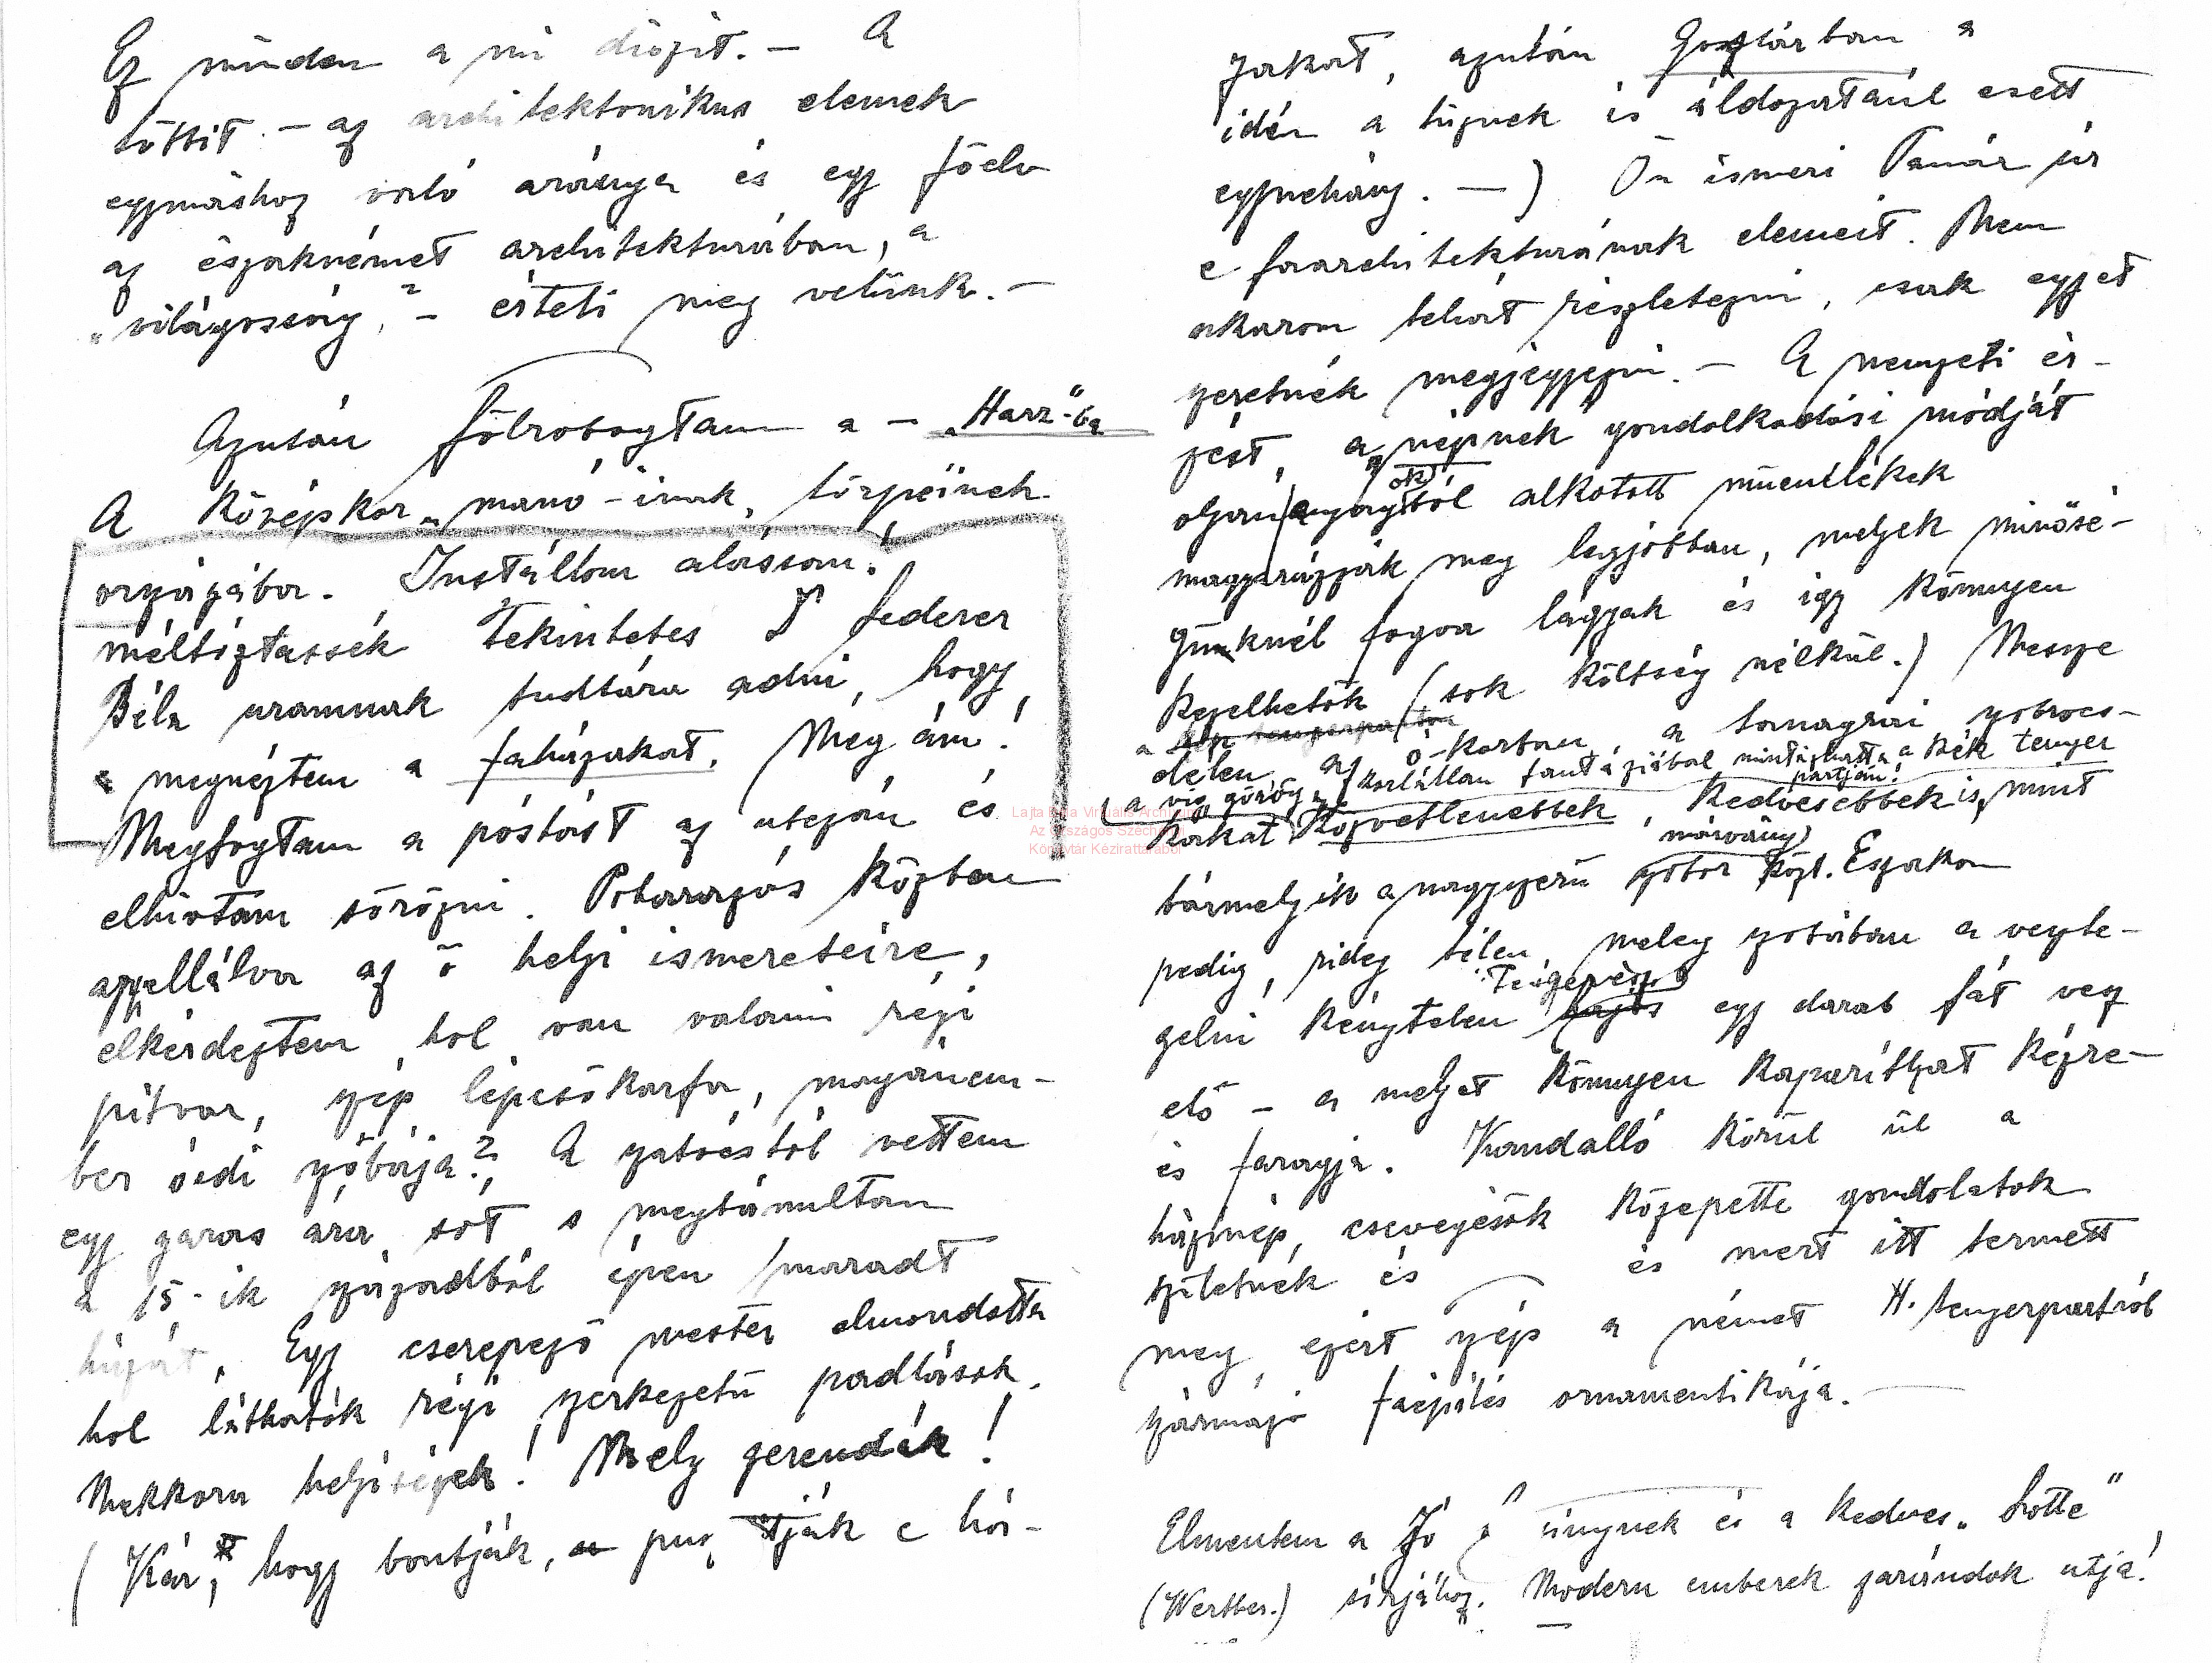 Ez minden a mi
többit. – az architektonikus elemek
egymáshoz való aránya és egy főelv
az északnémet architekturában, a
„világosság," – érteti meg velünk. –
Azután fölrobogtam a – „Harz"-ba
A középkor „manó-inak, törpéinek
országába. Instállom alássan!
méltóztassék Tekintetes Lederer
Béla uramnak tudtára adni, hogy
megnéztem a faházakat. Még ám!
Megfogtam a póstást az utczán és
elhivtam sörözni. Poharazás közben
appellálva az ő helyi ismereteire,
elkérdeztem, hol van valami régi
pitvar, szép lépcsőkarfa, magánem-
ber ódi szobája? A szatócstól vettem
egy garas ára sót s megbámultam
a 15-ik századból épen maradt
házát. Egy cserepező mester elmondotta
hol láthatók régi szerkezetü padlások.
Mekkora helyiségek! Mely gerendák!
(Kár, hogy bontják, pusztják e há-
zakat, azután Goslárban a
idén a tüznek is áldozatául esett
egynehány. –) Ön ismeri Tanár úr
e faarchitekturának elemeit. Nem
akarom tehát részletezni, csak egyet
szeretnék megjegyezni. – A nemzeti ér-
zést, a népnek gondolkodási módját
olyan anyagokból alkotott müemlékek
magyarázzák meg legjobban, melyek minősé-
güknél fogva lágyak és igy könnyen
kezelhetők (sok költség nélkül.) Messze
délen, az ó-korban, a tanagrai szobrocs-
a vig görög korlátlan fantáziából mintázhatta a kék tenger
partján!
kákat közvetlenebbek, kedvesebbek is, mint
bármelyik a nagyszerü márvány szobor közt. Északon
pedig, rideg télen meleg szobában a veszte-
gelni kénytelen Tengerész egy darab fát vesz
elő – a melyet könnyen kaparithat kézre
és faragja. Kandalló körül ül a
háznép, csevegésök közepette gondolatok
születnek és és mert itt termett
meg, ezért szép a német É. tengerpartról
származó faépités ornamentikája. –
Elmentem a Jó únynek és a kedves „Lotte"
(Werther.) sirjához. Modern emberek zarándok utja!
Lajta Béla Virtuális Archívum
Az Országos Széchényi
Könyvtár Kézirattárából